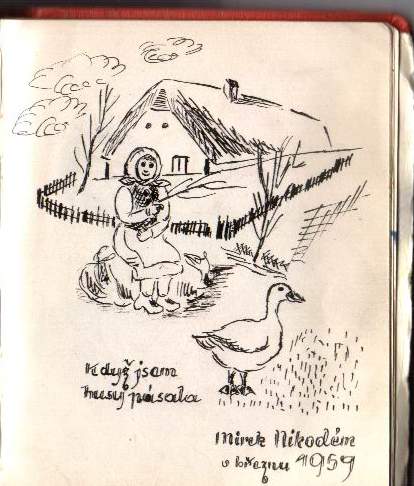 Když jsem
husy pásala
Mirek Nikodém
v březnu 1959